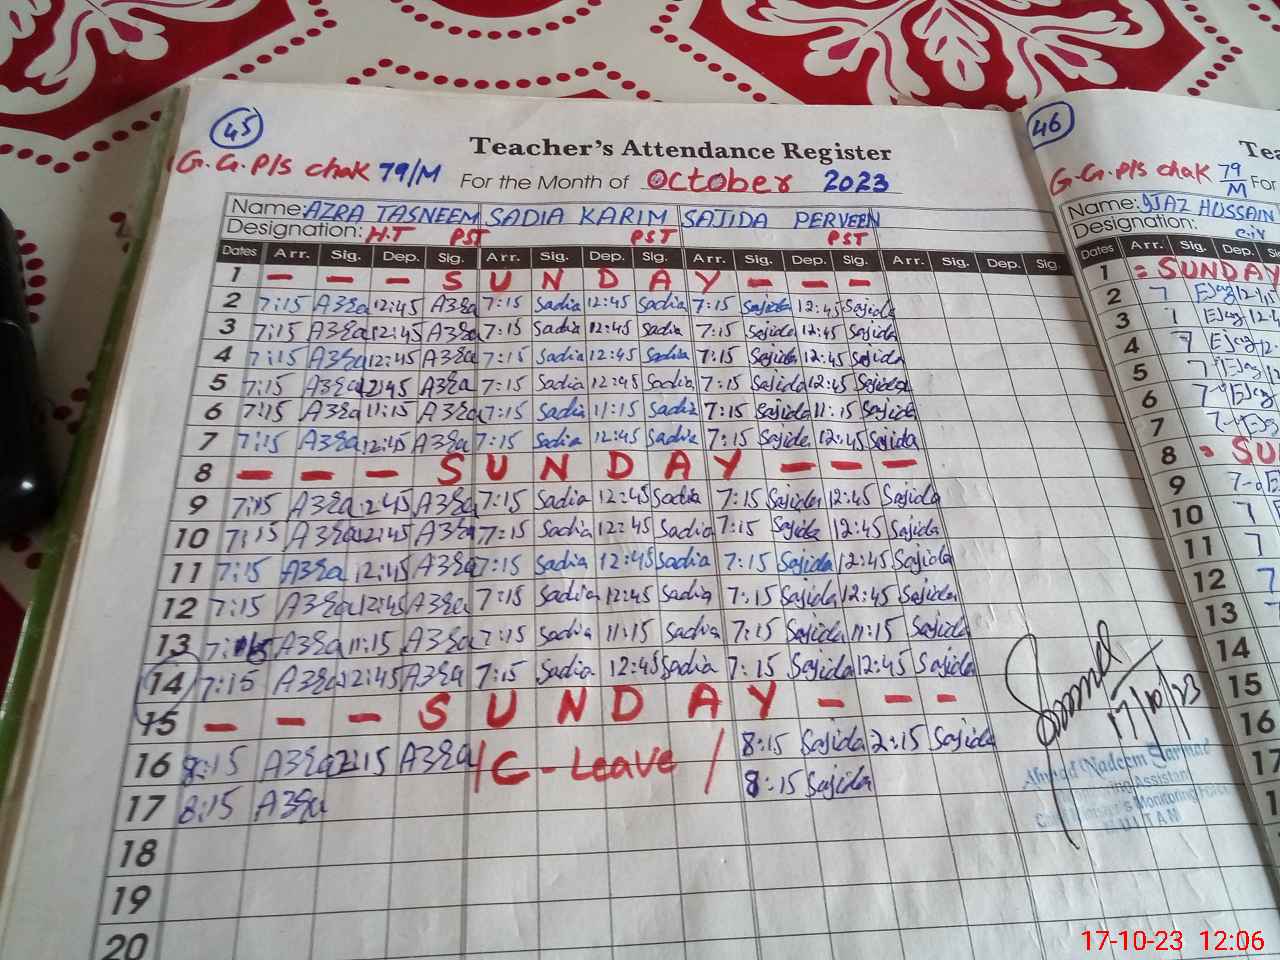 45
Teacher's Attendance Register
G.G.P/S chak 79/M For the Month of October 2023
Name: AZRA TASNEEM SADIA KARIM SAJIDA PERVEEN
Designation: H.T PST PST PST
Dates Arr. Sig. Dep. Sig. Arr. Sig. Dep. Sig. Arr. Sig. Dep. Sig. Arr. Sig. Dep. Sig.
1 - - - S U N D A Y - - -
2 7:15 Azra 12:45 Azra 7:15 Sadia 12:45 Sadia 7:15 Sajida 12:45 Sajida
3 7:15 Azra 12:45 Azra 7:15 Sadia 12:45 Sadia 7:15 Sajida 12:45 Sajida
4 7:15 Azra 12:45 Azra 7:15 Sadia 12:45 Sadia 7:15 Sajida 12:45 Sajida
5 7:15 Azra 12:45 Azra 7:15 Sadia 12:45 Sadia 7:15 Sajida 12:45 Sajida
6 7:15 Azra 11:15 Azra 7:15 Sadia 11:15 Sadia 7:15 Sajida 11:15 Sajida
7 7:15 Azra 12:45 Azra 7:15 Sadia 12:45 Sadia 7:15 Sajida 12:45 Sajida
8 - - - S U N D A Y - - -
9 7:15 Azra 12:45 Azra 7:15 Sadia 12:45 Sadia 7:15 Sajida 12:45 Sajida
10 7:15 Azra 12:45 Azra 7:15 Sadia 12:45 Sadia 7:15 Sajida 12:45 Sajida
11 7:15 Azra 12:45 Azra 7:15 Sadia 12:45 Sadia 7:15 Sajida 12:45 Sajida
12 7:15 Azra 12:45 Azra 7:15 Sadia 12:45 Sadia 7:15 Sajida 12:45 Sajida
13 7:15 Azra 11:15 Azra 7:15 Sadia 11:15 Sadia 7:15 Sajida 11:15 Sajida
14 7:15 Azra 12:45 Azra 7:15 Sadia 12:45 Sadia 7:15 Sajida 12:45 Sajida
15 - - - S U N D A Y - - -
16 8:15 Azra 2:15 Azra / C - Leave / 8:15 Sajida 2:15 Sajida
17 8:15 Azra 8:15 Sajida
18
19
20
17/10/23
Ahmad Nadeem Sarwar
Monitoring Assistant
Monitoring Force
MULTAN
46
G.G.P/S chak 79/M For
Name: IJAZ HUSSAIN
Designation:
Dates Arr. Sig. Dep.
1 = SUNDAY
2 7 Ejaz 12:45
3 7 Ejaz
4 7 Ejaz 12
5 7 Ejaz
6 7 Ejaz
7 7
8
9 7
10 7
11 7
12 7
13
14
15
16
17
17-10-23 12:06